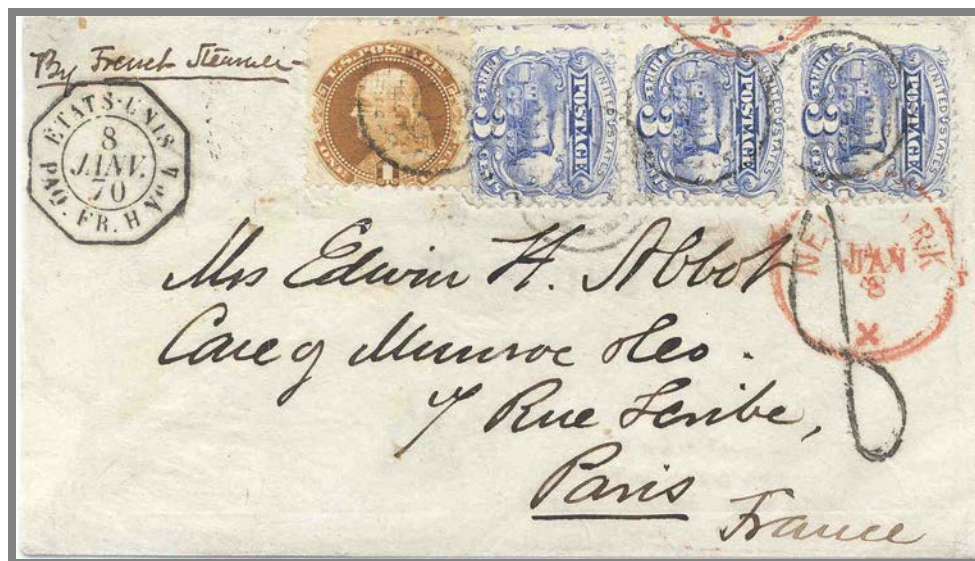 By French Steamer
ETATS-UNIS
8
JANV.
70
PAQ. FR. H Nº 4
U.S. POSTAGE
ONE CENT
1
UNITED STATES
POSTAGE
3
UNITED STATES
POSTAGE
3
UNITED STATES
POSTAGE
3
NEW YORK
JAN
8
Mrs Edwin H. Abbot
Care of Munroe & Co.
7 Rue Scribe,
Paris
France